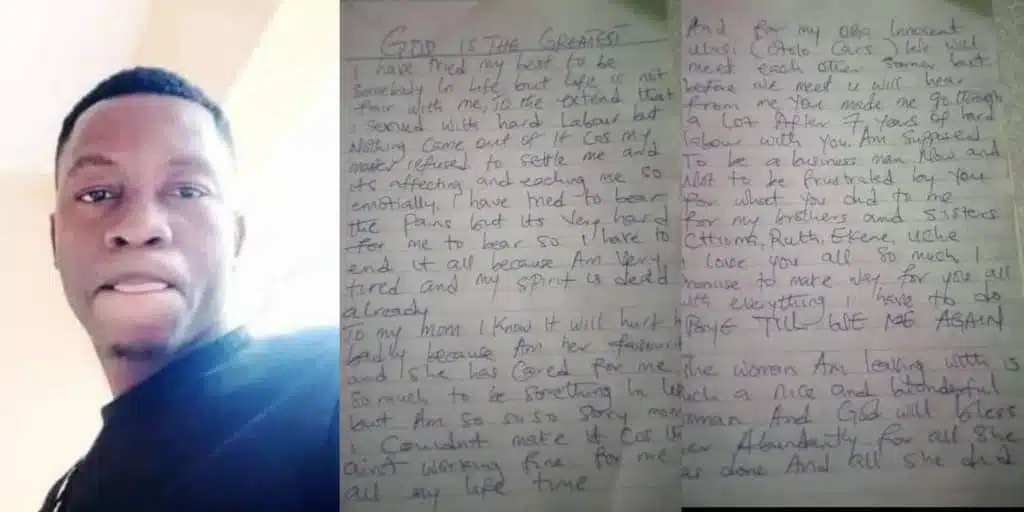 GOD IS THE GREATEST
I have tried my best to be
Somebody in life but life is not
fair with me, To the extend that
i served with hard Labour but
Nothing came out of it Cos my
refused to settle me and
its affecting and eaching me so
emotially. I have tried to bear
the Pains but its very hard
for me to bear so i have to
end it all because Am very
tired and my spirit is dead
already
To my mom I know it will hurt
badly because Am her favourit
and she has cared for me
so much to be something in life
but Am so so so sorry mom
i Couldnt make it Cos
aint working fine for me
all my life time
And for my oga Innocent
(Stolo Cars) We will
meet each other Sooner but
before we meet u will hear
from me You made me go through
a lot After 7 years of hard
labour with you. Am supposed
To be a business man Now and
Not to be frustrated by you
for what you did to me
for my brothers and sisters
Ruth, Ekene, Uche
I love you all so much I
promise to make way for you all
with everything i have to do
BYE TILL WE ME AGAIN
The woman Am leaking with is
such a nice and wonderful
woman And God will bless
her Abundantly for all she
has done And all she did